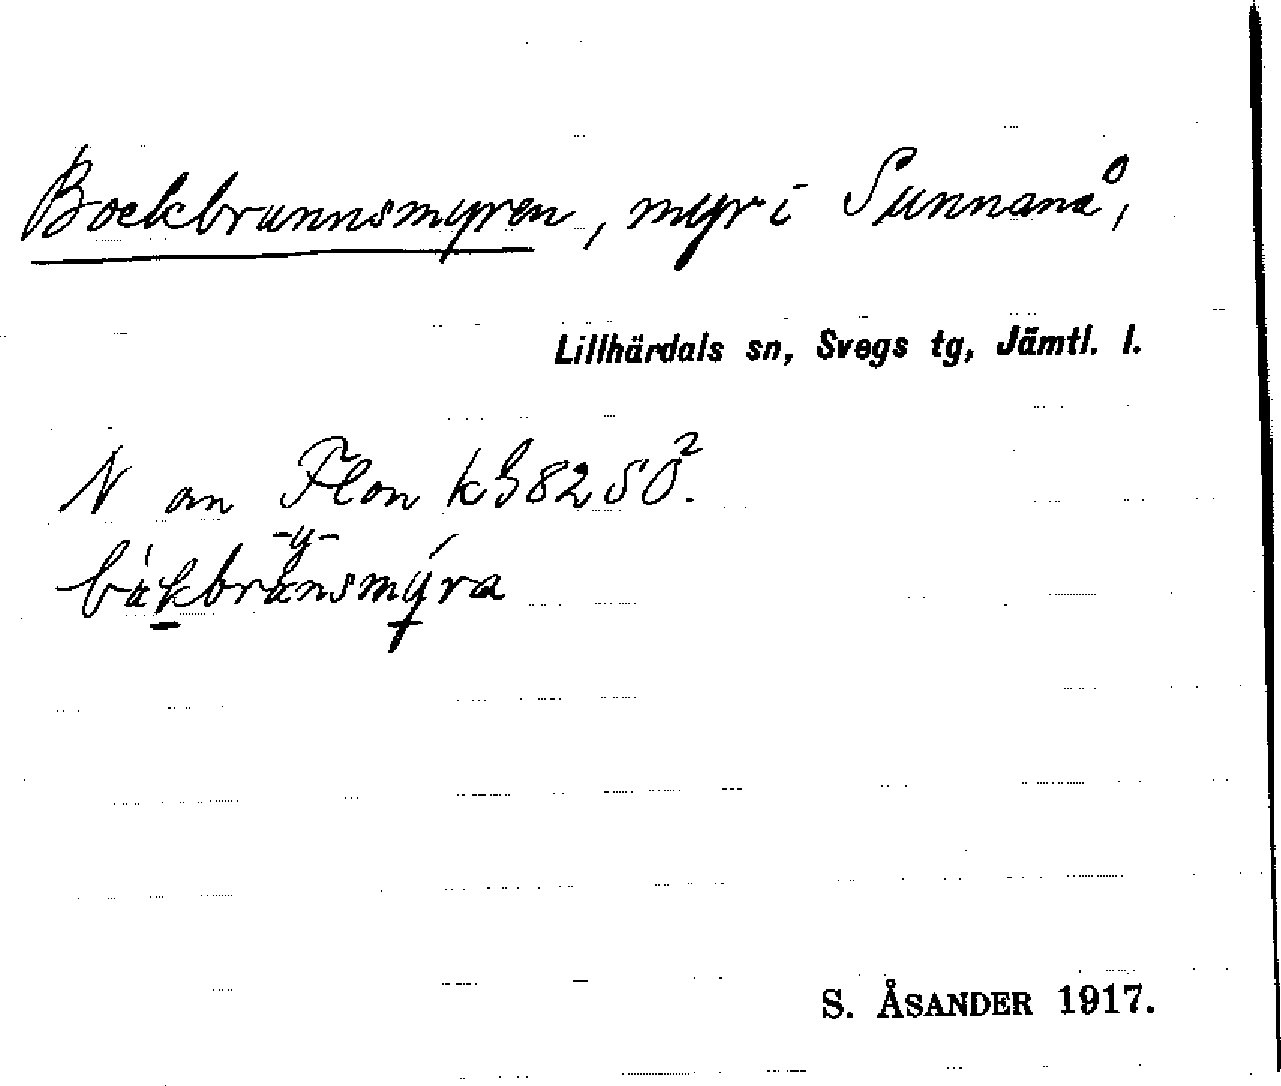 Bockbrunnsmyren, myr i Sunnanå,
Lillhärdals sn, Svegs tg, Jämtl. l.
N om Flon kG 82 SO².
-y-
båkbrånsmýra
S. ÅSANDER 1917.